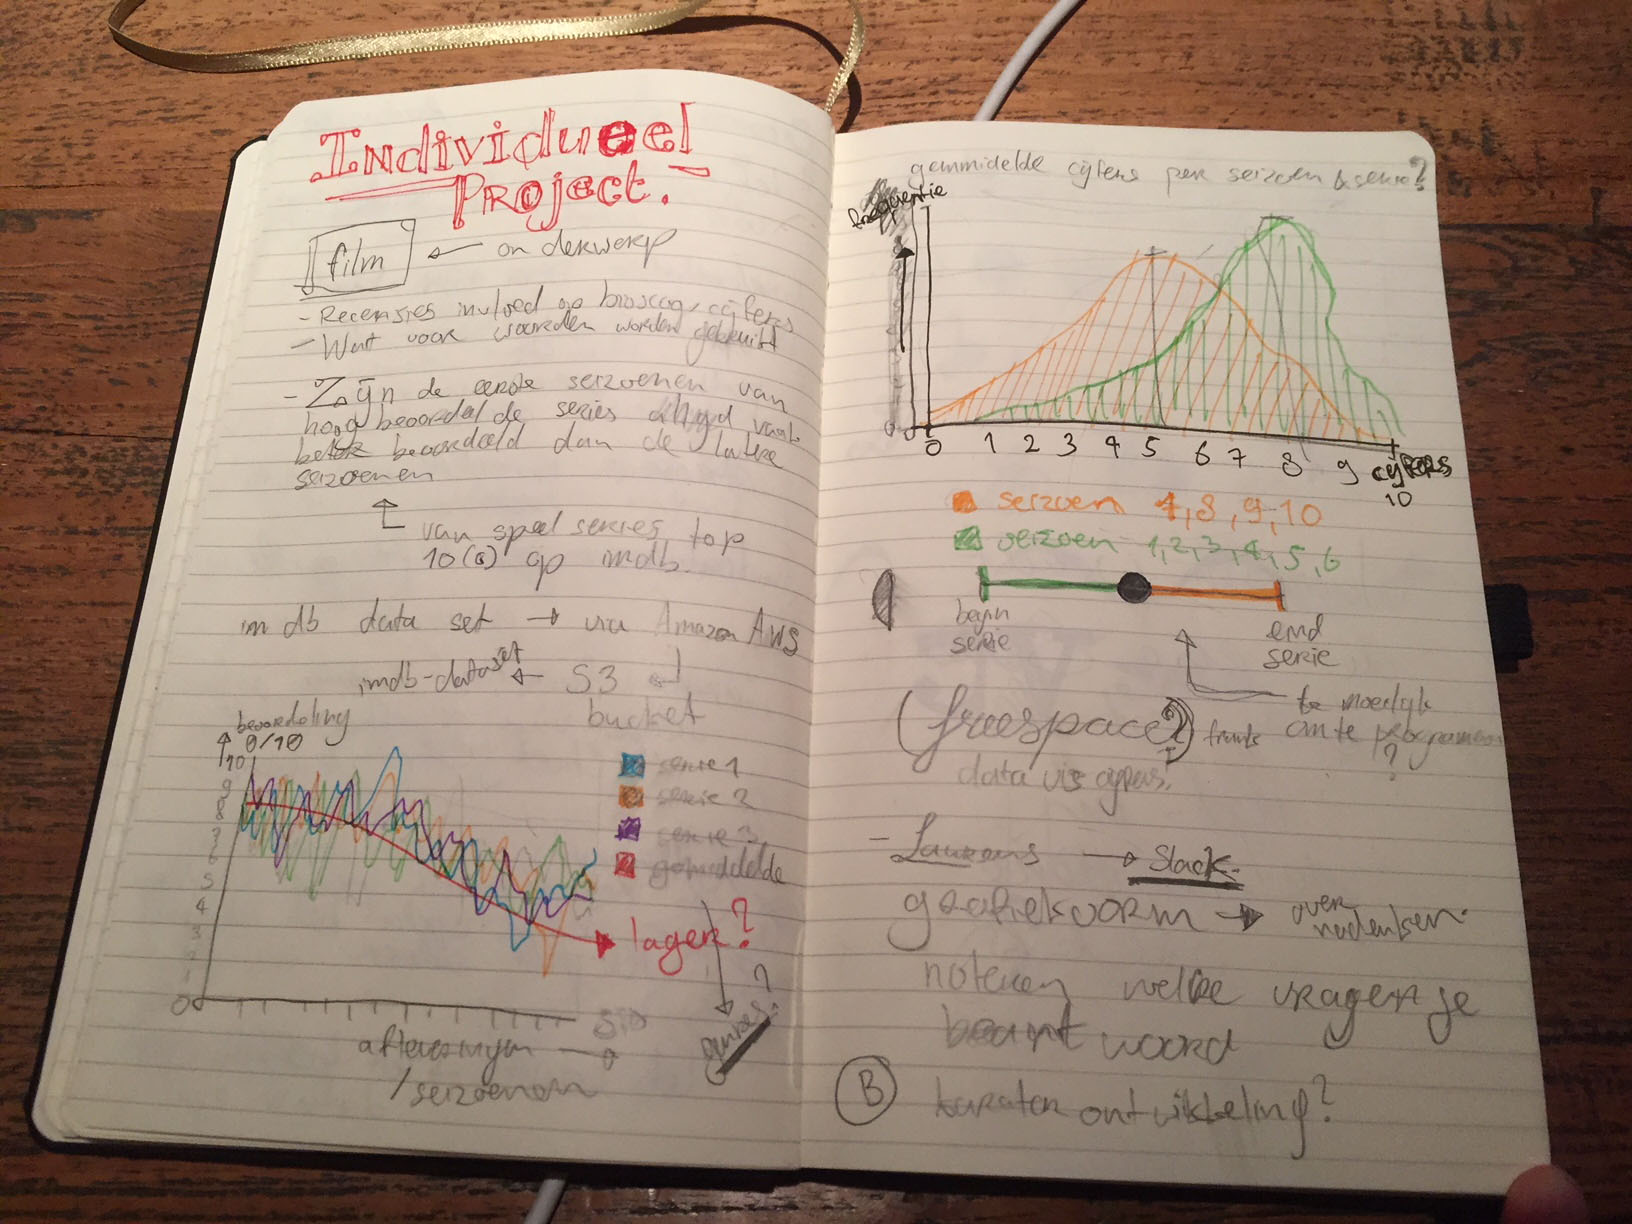 Individueel
Project.
film ← onderwerp
- Recensies invloed op bioscoop, cijfers
- Wat voor woorden worden gebruikt
- Zijn de eerste seizoenen van
hoog beoordeelde series altijd vaak
beter beoordeeld dan de latere
seizoenen
van speel series top
10(0) op imdb.
imdb data set → via Amazon AWS
imdb-dataset ← S3
bucket
beoordeling
0/10
10
9
8
7
6
5
4
3
2
1
0
serie 1
serie 2
serie 3
gemiddelde
lager?
?
genres?
afleveringen →
/seizoenen
gemmidelde cijfers per seizoen & serie?
frequentie
0
0 1 2 3 4 5 6 7 8 9 cijfers
10
seizoen 7,8,9,10
seizoen 1,2,3,4,5,6
begin
serie
end
serie
te moeilijk
(freespace?) om te programmeren
?
data vis
- Laurens → Slack.
grafiekvorm → over
nadenken.
noteren welke vragen je
beantwoord
B karakter ontwikkeling?